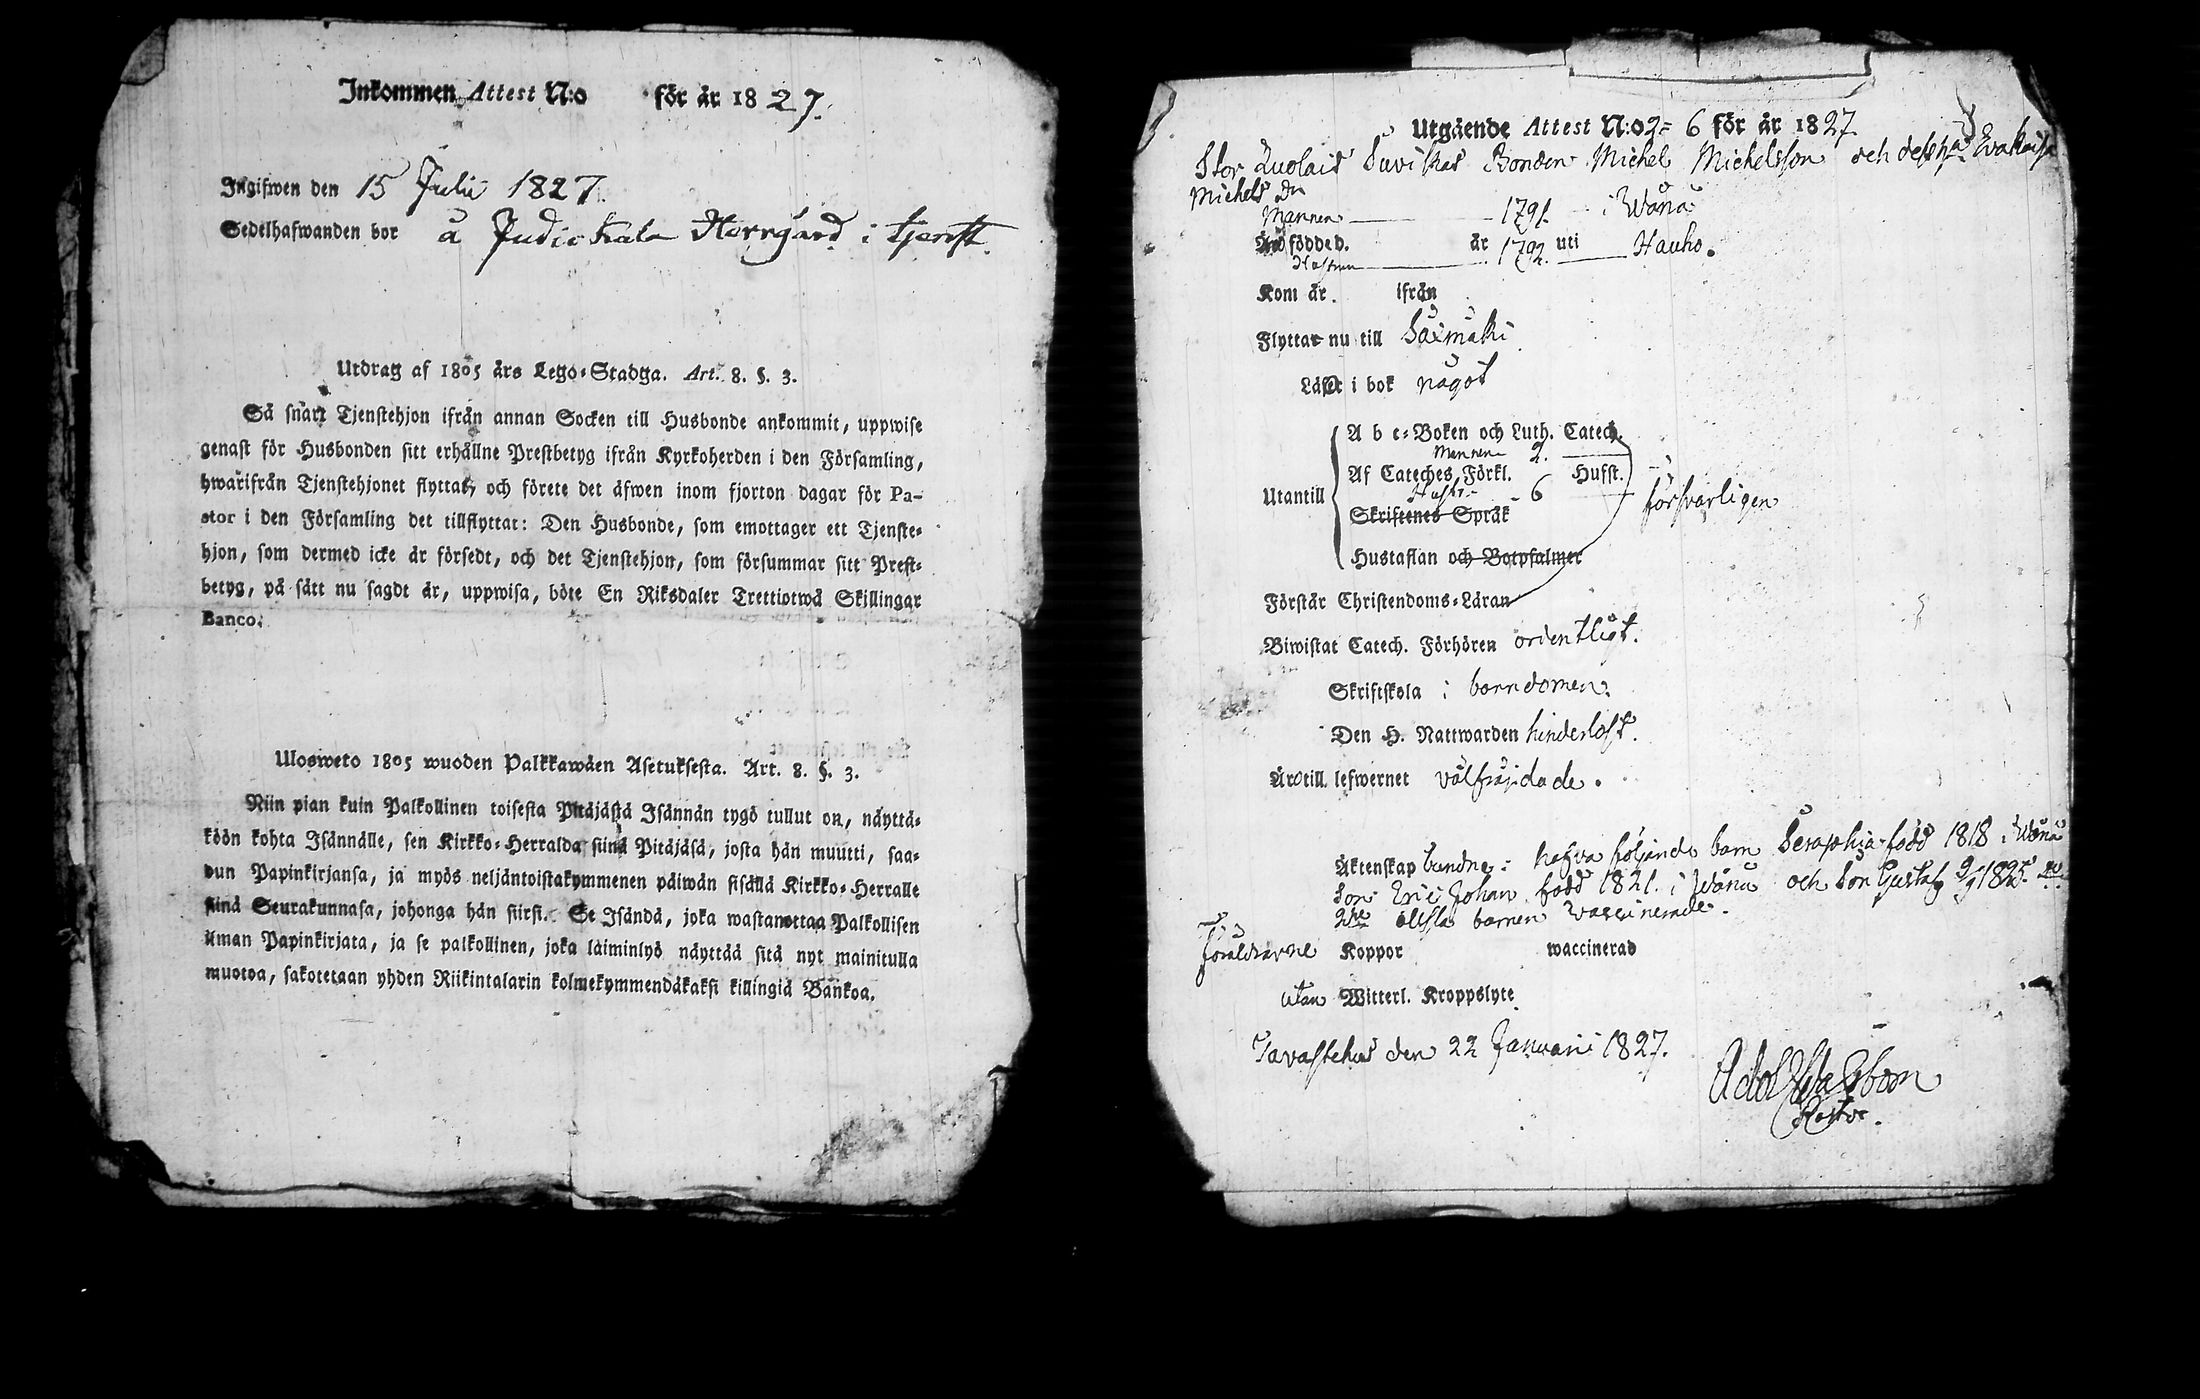 Inkommen Attest N:o för år 1827.
Ingifwen den 15 Julii 1827.
Sedelhafwanden bor å Judickala Herrgård i tjenst.
Utdrag af 1805 års Lego-Stadga. Art. 8. §. 3.
Så snart Tjenstehjon ifrån annan Socken till Husbonde ankommit, uppwise
genast för Husbonden sitt erhållne Prestbetyg ifrån Kyrkoherden i den Församling,
hwarifrån Tjenstehjonet flyttat, och förete det äfwen inom fjorton dagar för Pa-
stor i den Församling det tillflyttat: Den Husbonde, som emottager ett Tjenste-
hjon, som dermed icke är försedt, och det Tjenstehjon, som försummar sitt Prest-
betyg, på sätt nu sagdt är, uppwisa, böte En Riksdaler Trettiotwå Skillingar
Banco.
Ulosweto 1805 wuoden Palkkawäen Asetuksesta. Art. 8. §. 3.
Niin pian kuin Palkollinen toisesta Pitäjästä Isännän tygö tullut on, näyttä-
köön kohta Isännälle, sen Kirkko-Herralda siinä Pitäjäsä, josta hän muutti, saa-
dun Papinkirjansa, ja myös neljäntoistakymmenen päiwän sisällä Kirkko-Herralle
siinä Seurakunnasa, johonga hän siirsi. Se Isändä, joka wastanottaa Palkollisen
ilman Papinkirjata, ja se palkollinen, joka laiminlyö näyttää sitä nyt mainitulla
muotoa, sakotetaan yhden Riikintalarin kolmekymmendäkaksi killingiä Bankoa.
Utgående Attest N:o 2= 6 för år 1827
Stor Luolais Suviskas Bonden Michel Michelsson och dess h:a Eva Caisa
Michels Dr
Mannen 1791. i Wånå
Äro födde d. år 1792. uti Hauho.
Hustrun
Kom år. ifrån
Flyttar nu till Säxmäki
Läser i bok något
Utantill
A b c-Boken och Luth. Catech.
Mannen 2.
Af Cateches. Förkl. Husst.
Hustr. - 6
Skriftenes Språk
försvarligen
Hustaflan och Botpsalmer
Förstår Christendoms-Läran
Biwistat Catech. Förhören ordentligt.
Skriftskola i barndomen.
Den H. Nattwarden hinderlöst.
Äro till lefwernet välfräjdade.
Äktenskap bundne: hafva följande barn Seraphia född 1818 i Wånå
Son Eric Johan född 1821. i Wånå och Son Gustaf 9/9 1825.
alla barnen vaccinerade.
Föräldrarne Koppor waccinerad
utan Witterl. Kroppslyte
Tavastehus den 22 Januarii 1827.
Pastor.